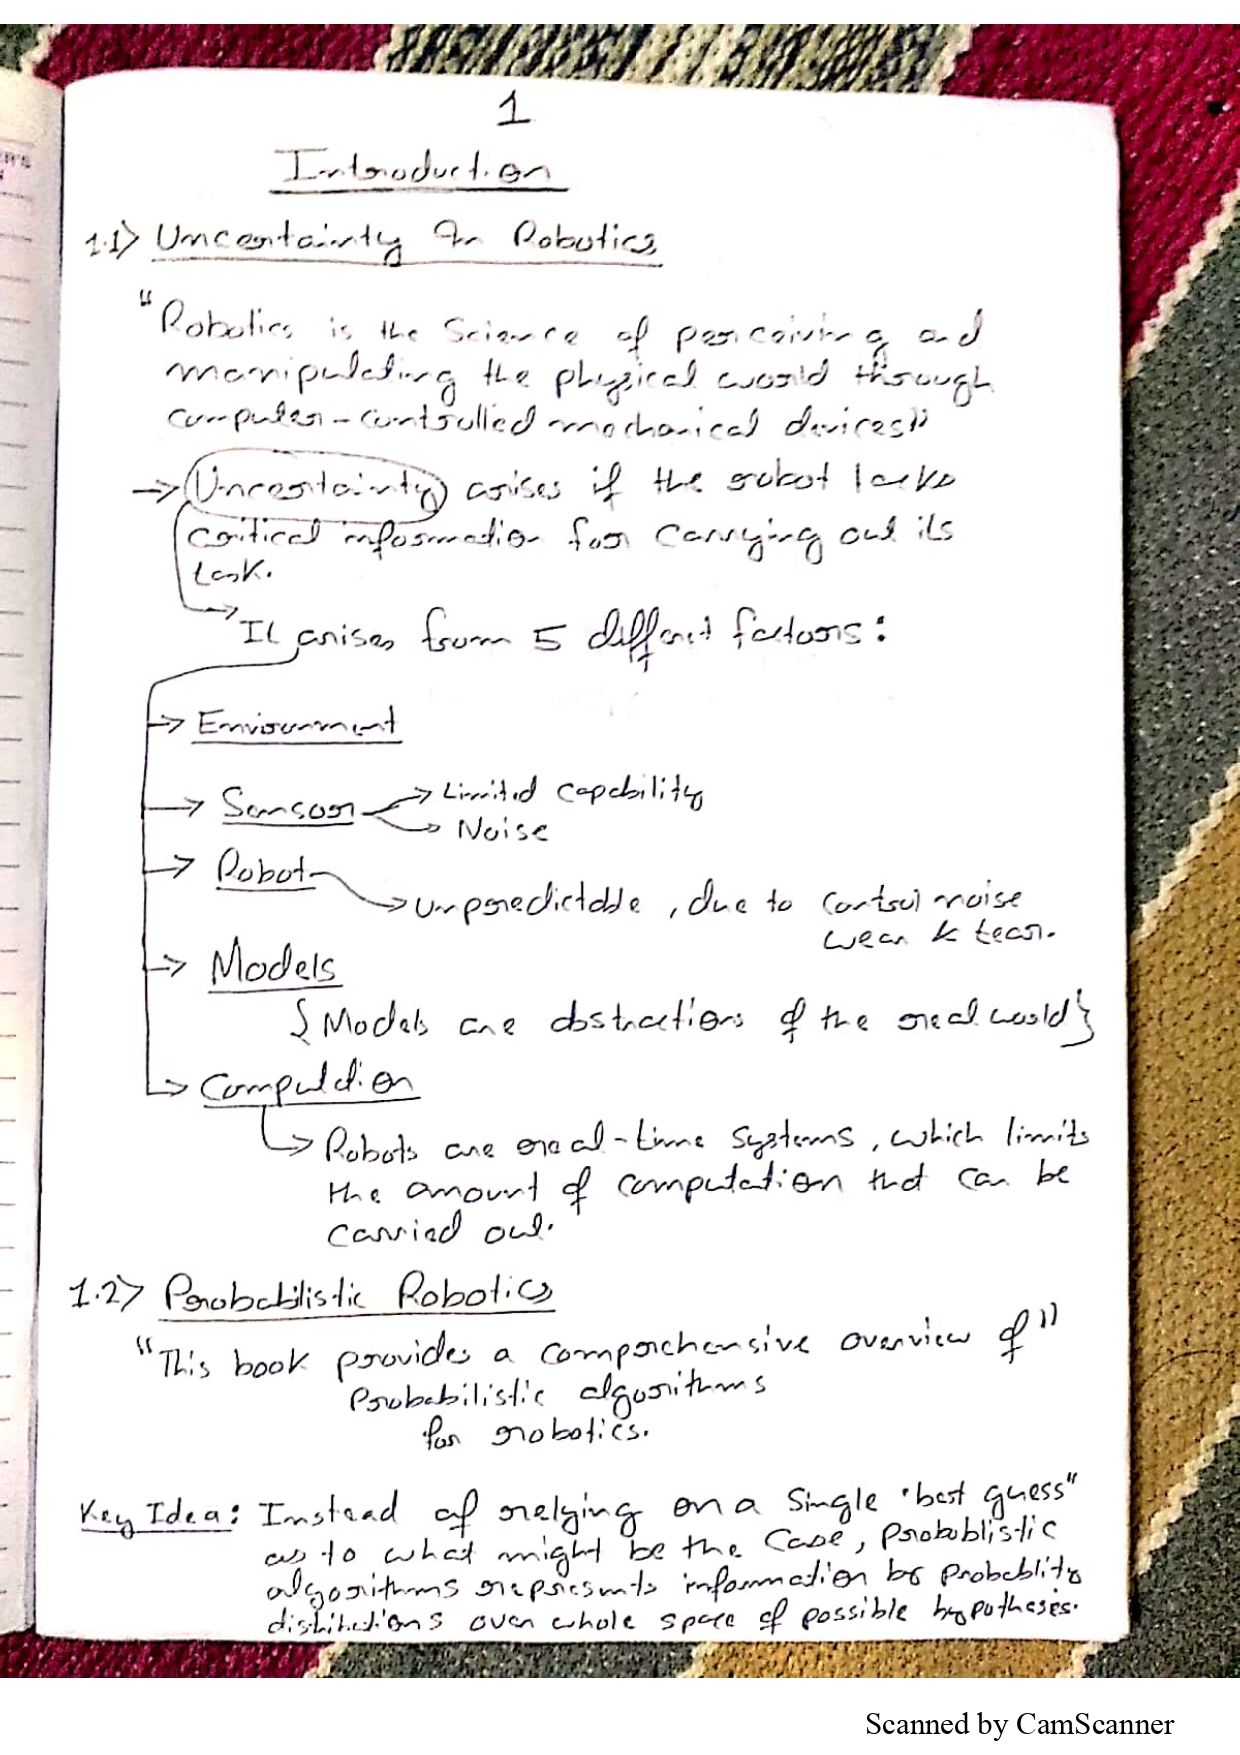 1
Introduction
1.1> Uncertainty In Robotics
"Robotics is the Science of perceiving and
manipulating the physical world through
computer-controlled mechanical devices"
→ Uncertainty arises if the robot lacks
critical information for carrying out its
task.
→ It arises from 5 different factors:
→ Environment
→ Sensor → Limited capability
→ Noise
→ Robot
→ unpredictable, due to control noise
wear & tear.
→ Models
{Models are abstractions of the real world}
→ Computation
→ Robots are real-time systems, which limits
the amount of computation that can be
carried out.
1.2> Probabilistic Robotics
"This book provides a comprehensive overview of"
Probabilistic algorithms
for robotics.
Key Idea: Instead of relying on a Single "best guess"
as to what might be the Case, Probablistic
algorithms represents information by Probablity
distibutions over whole space of possible hypotheses.
Scanned by CamScanner